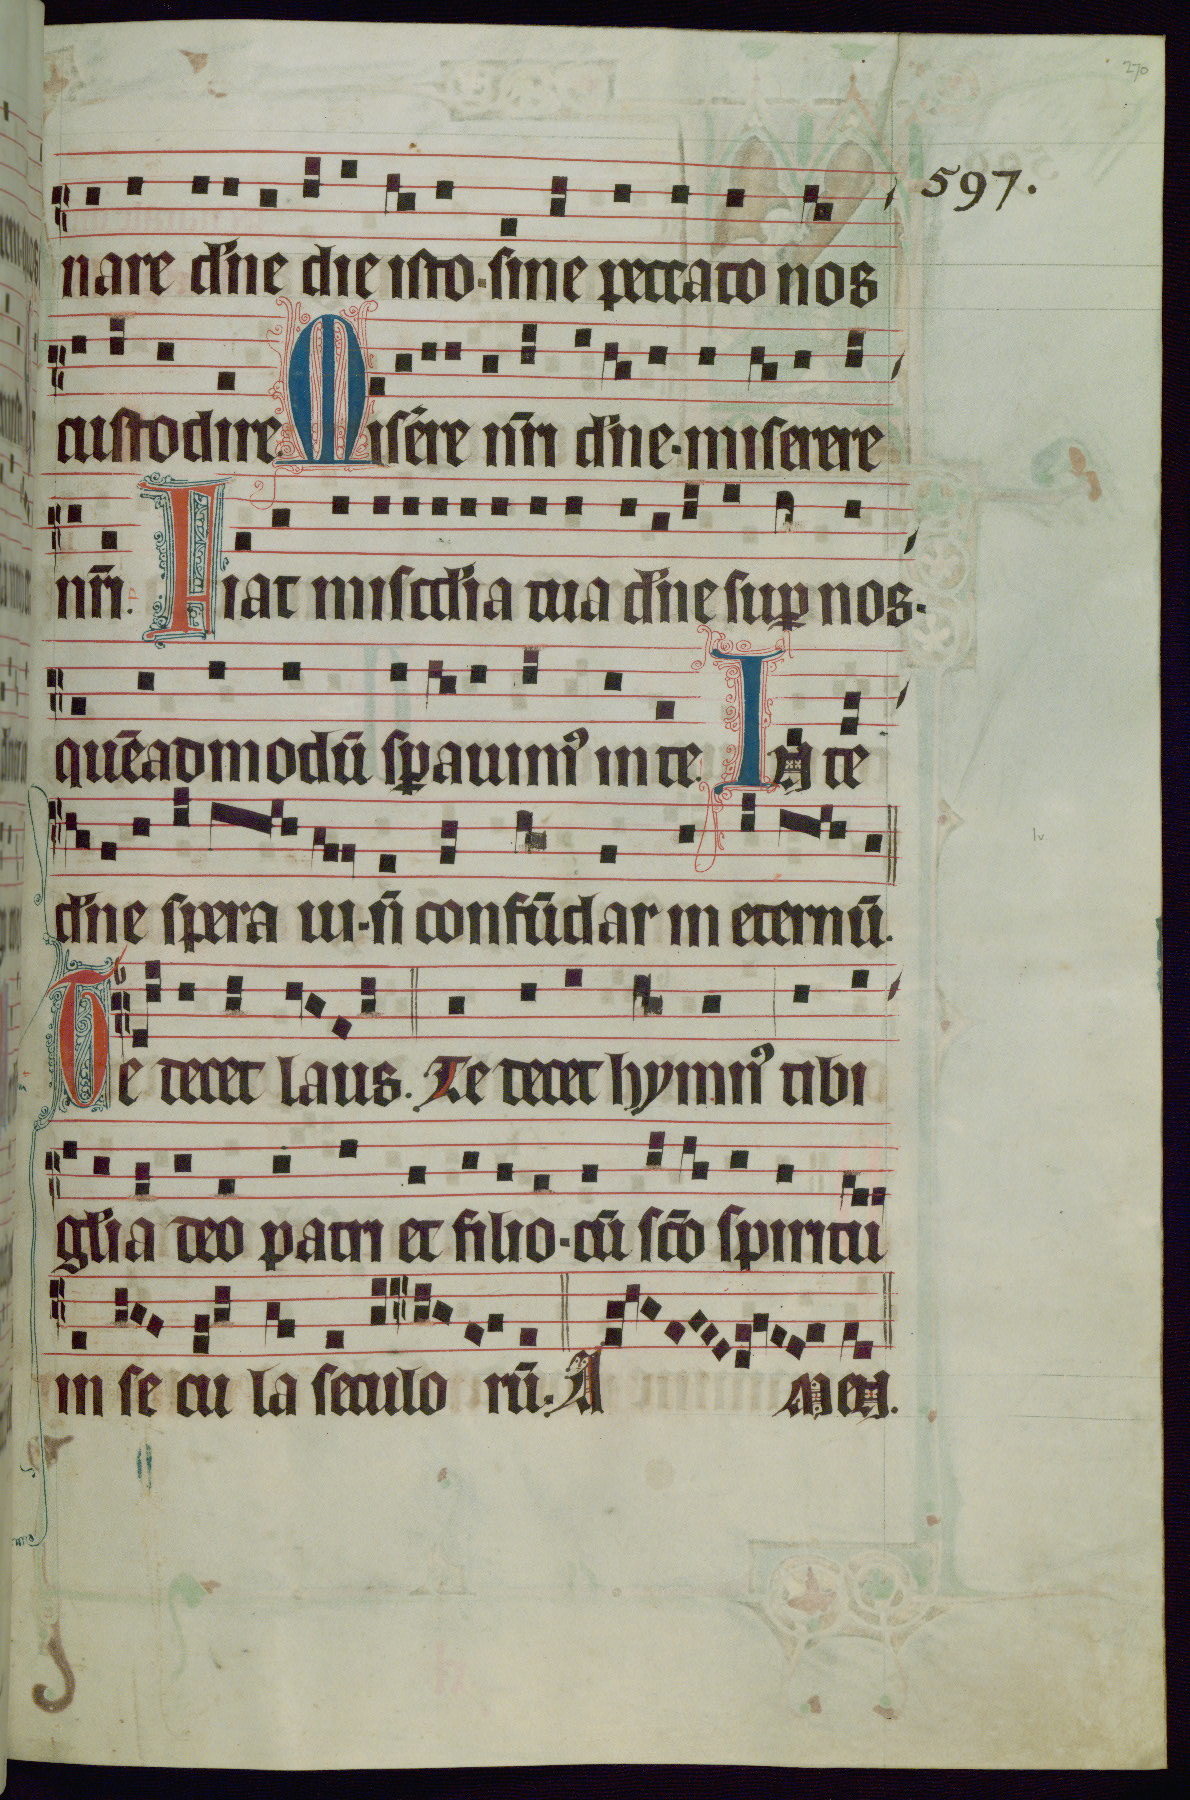 270
597.
nare dn̄e die isto·sine peccato nos
custodire. Misēre nr̄i dn̄e·miserere
nr̄i. Fiat misc̄dia tua dn̄e suꝑ nos·
quēadmodū sꝑauimꝰ in te. In te
dn̄e spera ui·n̄ confūdar in eternū.
Te decet laus. Te decet hymnꝰ tibi
gl̄ia deo patri et filio·cū sc̄o spiritu
in se cu la seculo rū. A men.